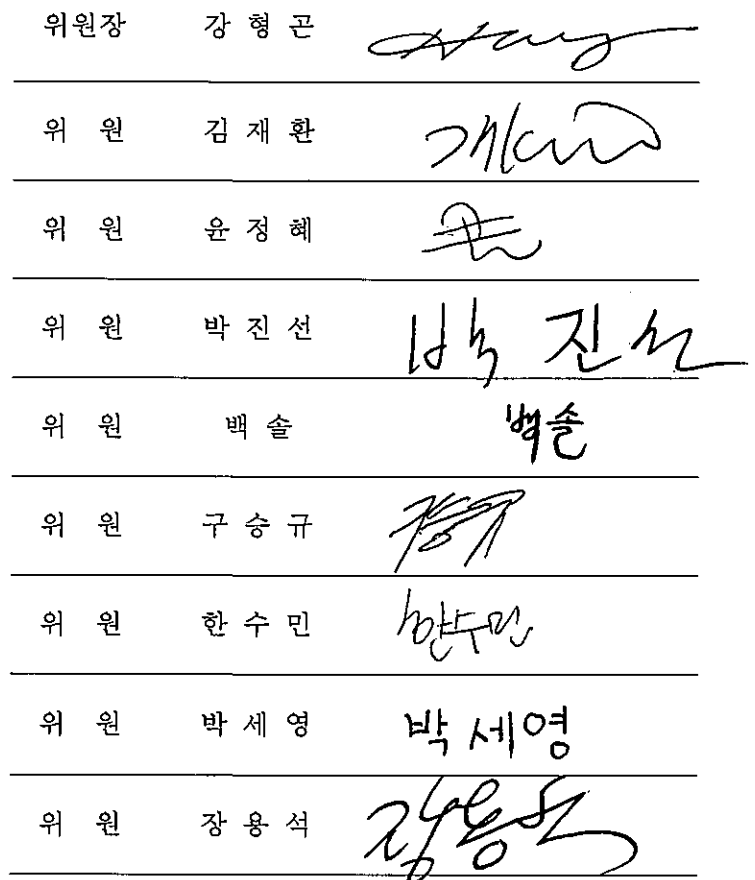 위원장 강 형 곤
위 원 김 재 환
위 원 윤 정 혜
위 원 박 진 선 박 진선
위 원 백 솔 백솔
위 원 구 승 규
위 원 한 수 민 한수민
위 원 박 세 영 박세영
위 원 장 용 석 장용석